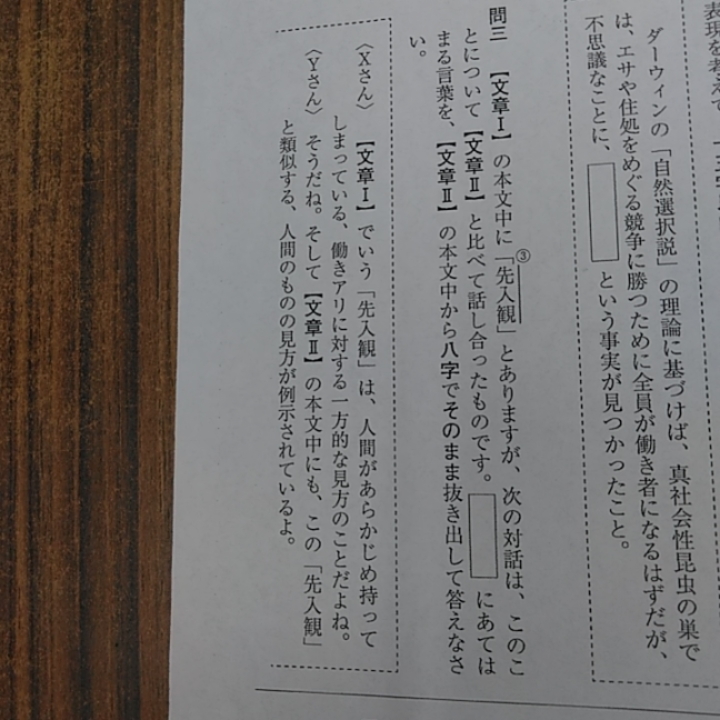 表現を考えて
ダーウィンの「自然選択説」の理論に基づけば、真社会性昆虫の巣で
は、エサや住処をめぐる競争に勝つために全員が働き者になるはずだが、
不思議なことに、 という事実が見つかったこと。
問三 【文章Ⅰ】の本文中に「③先入観」とありますが、次の対話は、このこ
とについて【文章Ⅱ】と比べて話し合ったものです。 にあては
まる言葉を、【文章Ⅱ】の本文中から八字でそのまま抜き出して答えなさ
い。
〈Xさん〉 【文章Ⅰ】でいう「先入観」は、人間があらかじめ持って
しまっている、働きアリに対する一方的な見方のことだよね。
〈Yさん〉 そうだね。そして【文章Ⅱ】の本文中にも、この「先入観」
と類似する、人間のものの見方が例示されているよ。